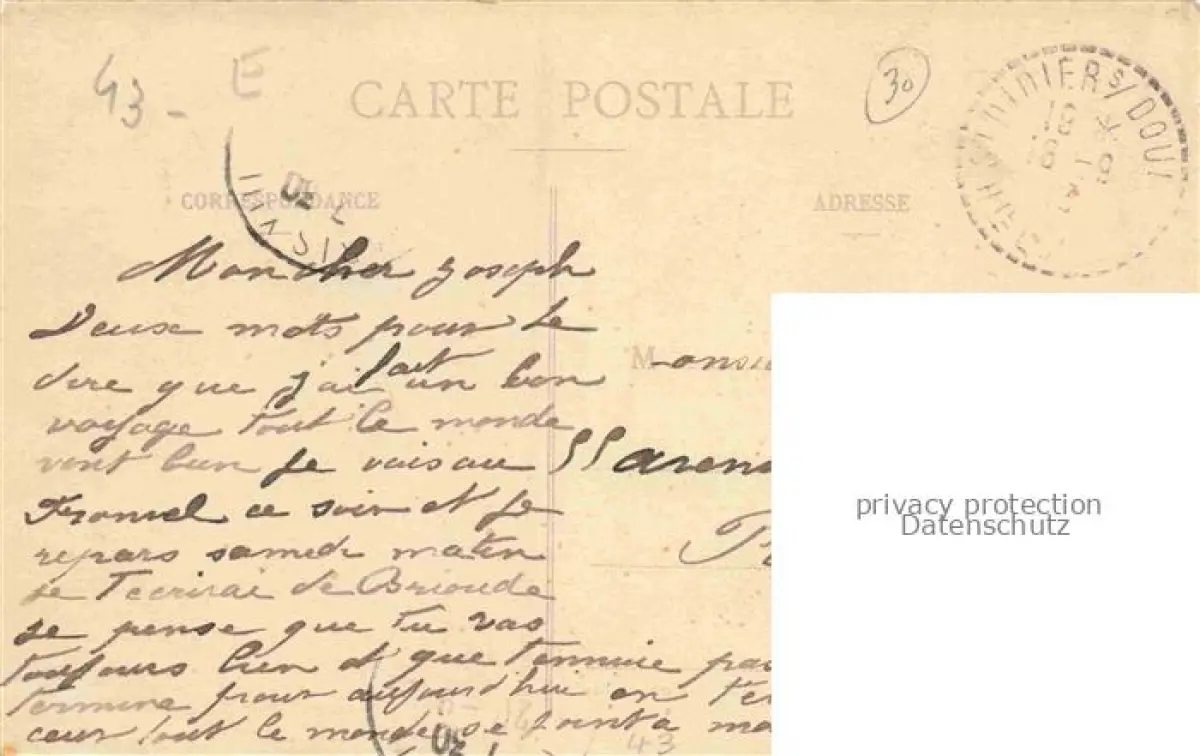 43 - E
30
CARTE POSTALE
ST DIDIER S/DOUL
CORRESPONDANCE
ADRESSE
Mon cher Joseph
Deux mots pour te
dire que j'ai fait un bon
voyage tout le monde
vont bien je vais au
ce soir et je
repars samedi matin
je t'ecrirai de Brioude
je pense que tu vas
toujours bien et que
termine pour aujourd'hui en
cœur tout le monde se joint à
Monsie
privacy protection
Datenschutz
43